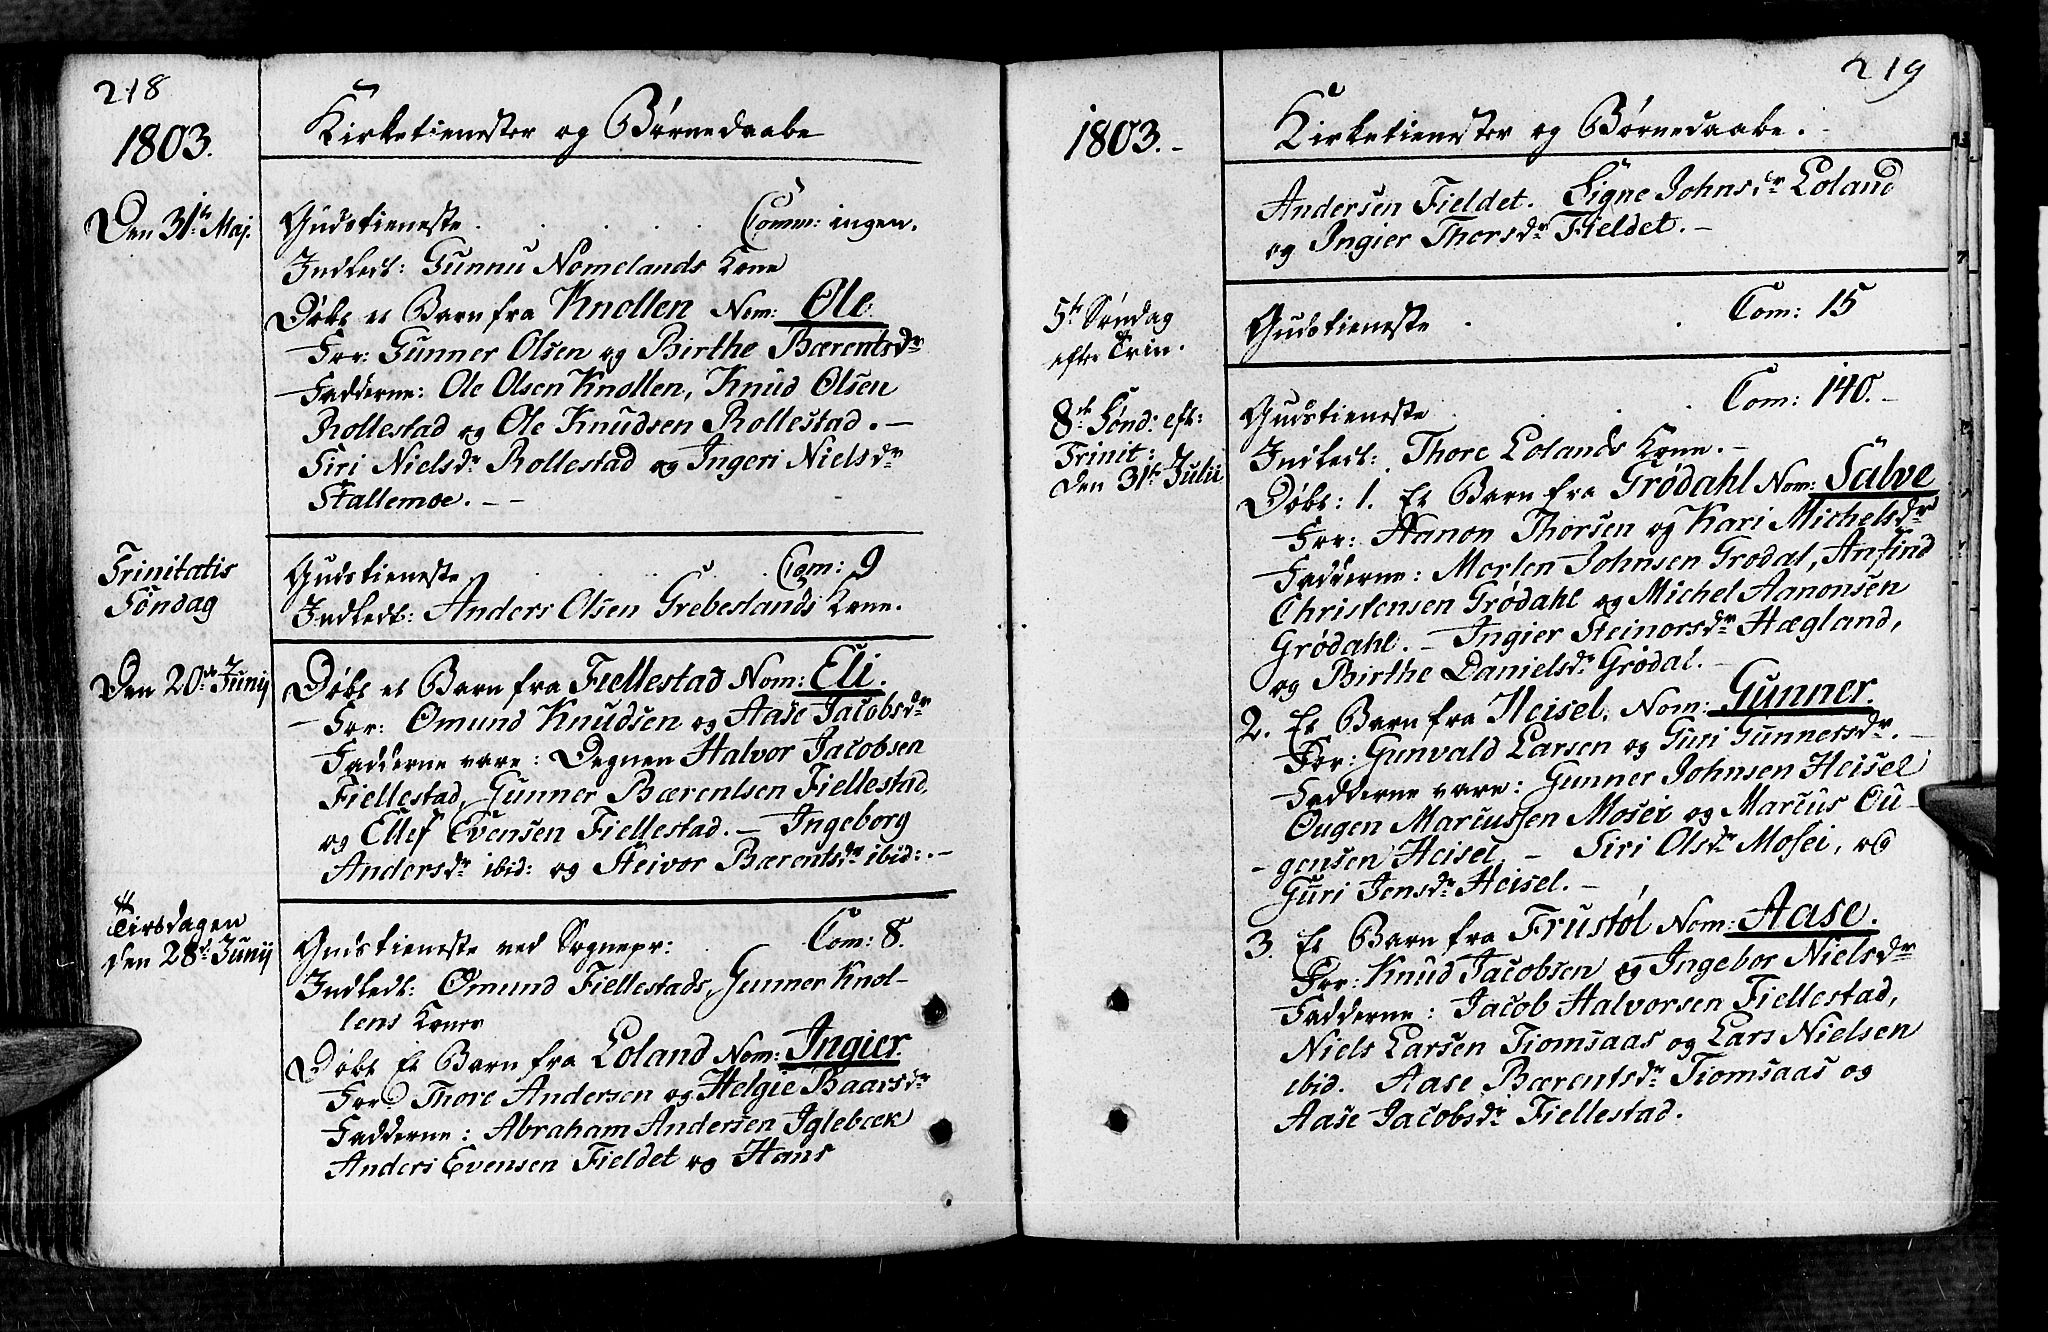 218
1803.
Kirketienester og Børnedaabe
Den 31te Maj.
Gudstieneste . . . . . Comm: ingen.
Indledt: Gunnu Nomelands Kone
Døbt et Barn fra Knollen Nom: Ole.
For: Gunner Olsen og Birthe Bærentsdr
Fadderne: Ole Olsen Knollen, Knud Olsen
Rollestad og Ole Knudsen Rollestad. –
Siri Nielsdr Rollestad og Ingeri Nielsdr
Stallemoe. – –
Trinitatis
Söndag
Gudstieneste . . . . Com: 9
Indledt: Anders Olsen Grebestands Kone.
Den 20de Junij
Døbt et Barn fra Fiellestad Nom: Eli.
– For: Omund Knudsen og Aase Jacobsdr
Fadderne vare: Degnen Halvor Jacobsen
Fiellestad, Gunner Bærentsen Fiellestad
og Ellef Evensen Fiellestad. – Ingeborg
Andersdr ibid: og Steivor Bærentsdr ibid:. –
Tirsdagen
den 28de Junij
Gudstieneste ved Sognepr: . Com: 8.
Indledt: Omund Fiellestads, Gunner Knol-
lens Koner
Døbt Et Barn fra Loland Nom: Ingier.
For: Thore Andersen og Helgie Baarsdr
Fadderne: Abraham Andersen Iglebæk
Anders Evensen Fieldet og Hans
219
1803. –
Kirketienester og Børnedaabe. –
Andersen Fieldet. Signe Johnsdr Loland
og Ingier Thorsdr Fieldet. –
5te Søndag
efter Trin.
Gudstieneste . . Com: 15
8de Sønd: eft:
Trinit:
den 31te Julii
Gudstieneste . . . Com: 140. –
Indledt: Thore Lolands Kone. –
Døbt: 1. Et Barn fra Grødahl Nom: Salve
For: Aanon Thorsen og Kari Michelsdr
Fadderne: Morten Johnsen Grodal, Anfind
Christensen Grødahl og Michel Aanonsen
Grødahl. – Ingier Steinorsdr Hægland,
og Birthe Danielsdr Grødal. –
2. Et Barn fra Heisel, Nom: Gunner.
For: Gunvald Larsen og Guri Gunnersdr. –
Fadderne vare: Gunner Johnsen Heisel
Ougen Marcussen Mosei og Marcus Ou-
-gensen Heisel. – Siri Olsdr Mosei, og
Guri Jensdr Heisel. –
3. Et Barn fra Frustøl Nom: Aase.
For: Knud Jacobsen og Ingebor Nielsdr
Fadderne: Jacob Halvorsen Fiellestad,
Niels Larsen Tiomsaas og Lars Nielsen
ibid. Aase Bærentsdr Tiomsaas og
Aase Jacobsdr Fiellestad.